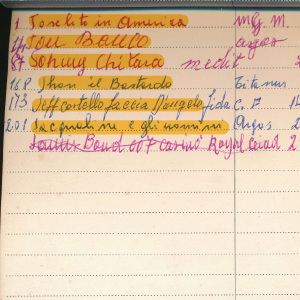 1 Joselito in America M.G.M.
Toni Bauco argos
87 Johnny Chitara medit 2
168 Jhon il Bastardo Titanus
173 Jeff Costello faccia d'angelo fida C. F 1
201 Jacqueline e gli uomini Argos 2
James Bond 007 casinò Royal Ceiad 2